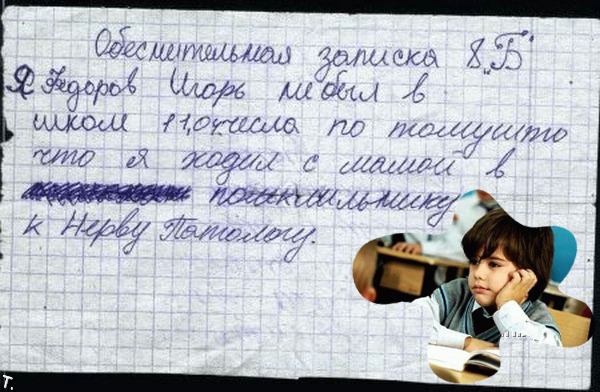 Обеснительная записка 8 „Б"
Я Федоров Игорь небыл в
школ 11,04числа по томушто
что я ходил с мамой в
к Нерву Патологу.
т.